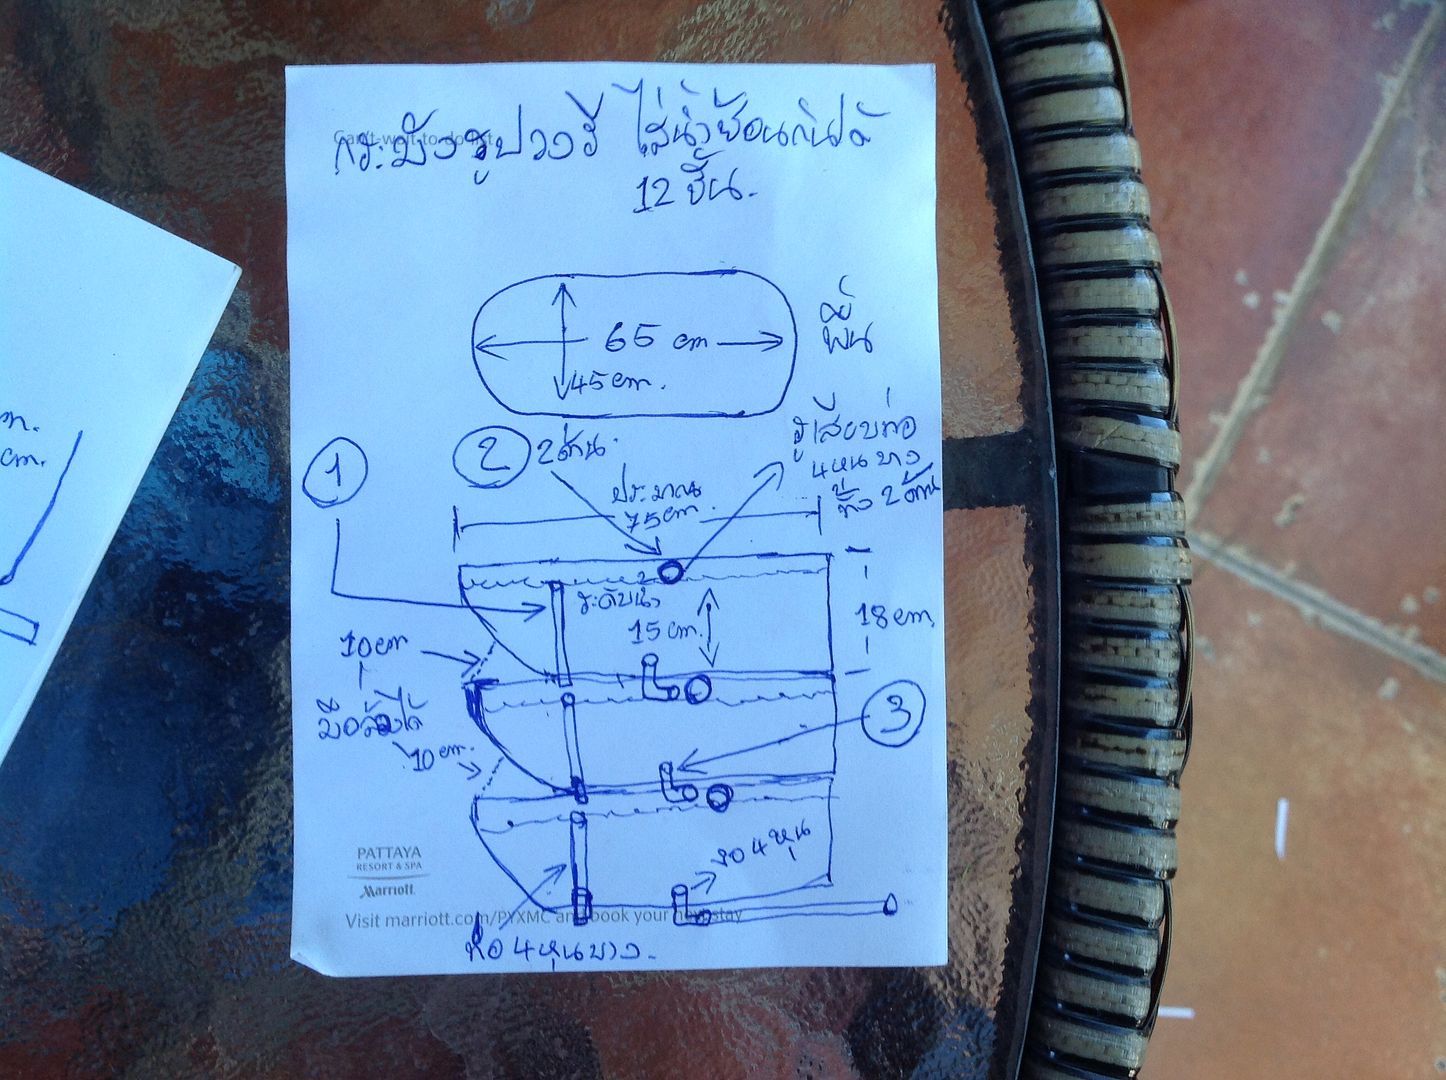 Can't wait to do list
กระบังรูปวงรี ใส่น้ำซ้อนกันได้
12 ชั้น.
65 cm
45 cm.
พื้น
1
2
2ด้าน.
รูเสียบท่อ
4หุนบาง
ทั้ง 2 ด้าน
ประมาณ
75 cm.
ระดับน้ำ
15 cm.
18 cm.
10 cm
มือล้วงได้
10 cm.
3
งอ 4 หุน
PATTAYA
RESORT & SPA
Marriott.
Visit marriott.com/PYXMC and book your next stay
ท่อ 4 หุนบาง.
m.
cm.